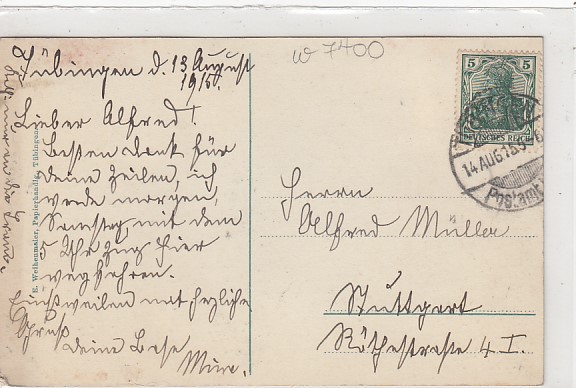 Tübingen d. 13 August
1915.
Lieber Alfred!
Besten Dank für
deine Zeilen, ich
werde morgen,
Samstag mit dem
5 Uhr Zug hier
wegfahren.
Einstweilen mit herzliche
Gruß
deine Base
E. Weihenmaier, Papierhandlg. Tübingen
w 7400
5 5
DEUTSCHES REICH
14 AUG 15 5-6
Postamt
Herrn
Alfred Müller
Stuttgart
Rötestraße 4 I.